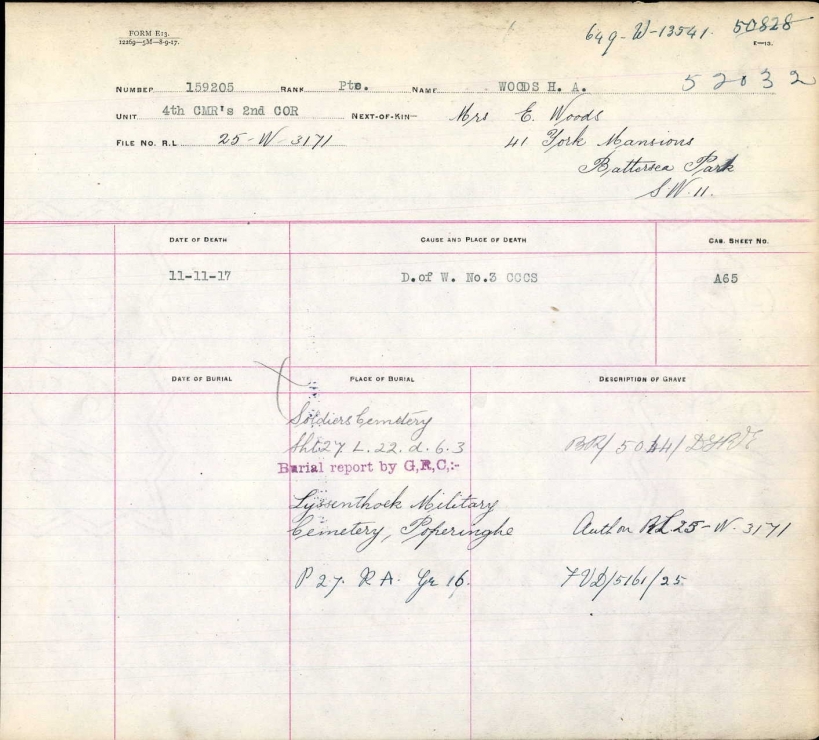 FORM E13.
12269—5M—8-9-17.
649-W-13541. 50828
E—13.
52032
NUMBER 159205 RANK Pte. NAME WOODS H. A.
UNIT 4th CMR's 2nd COR NEXT-OF-KIN— Mrs E. Woods
FILE NO. R.L. 25-W-3171 41 York Mansions
Battersea Park
S.W.11.
DATE OF DEATH CAUSE AND PLACE OF DEATH CAS. SHEET NO.
11-11-17 D.of W. No.3 CCCS A65
DATE OF BURIAL PLACE OF BURIAL DESCRIPTION OF GRAVE
Soldiers Cemetery
Sht 27 L. 22. d. 6. 3 BR/5044/
Burial report by G,R,C,:-
Lyssenthoek Military
Cemetery, Poperinghe Author RL 25-W-3171
P 27. R A. Gr 16. FVD/5161/25